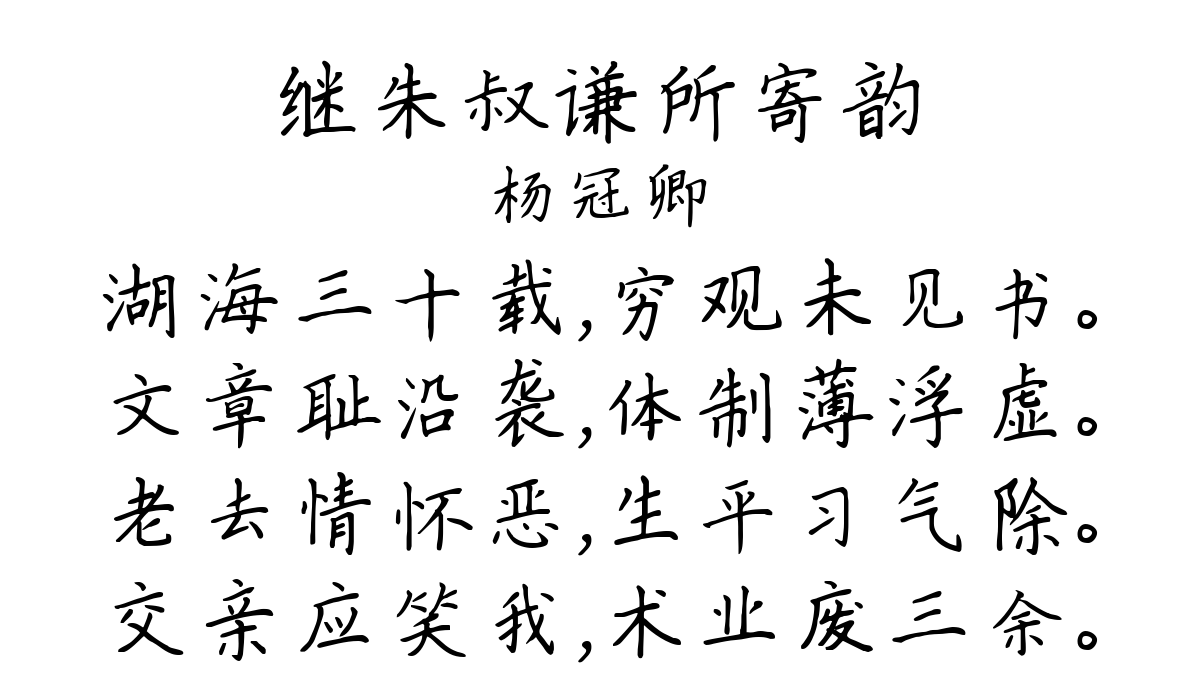 继朱叔谦所寄韵
杨冠卿
湖海三十载,穷观未见书。
文章耻沿袭,体制薄浮虚。
老去情怀恶,生平习气除。
交亲应笑我,术业废三余。